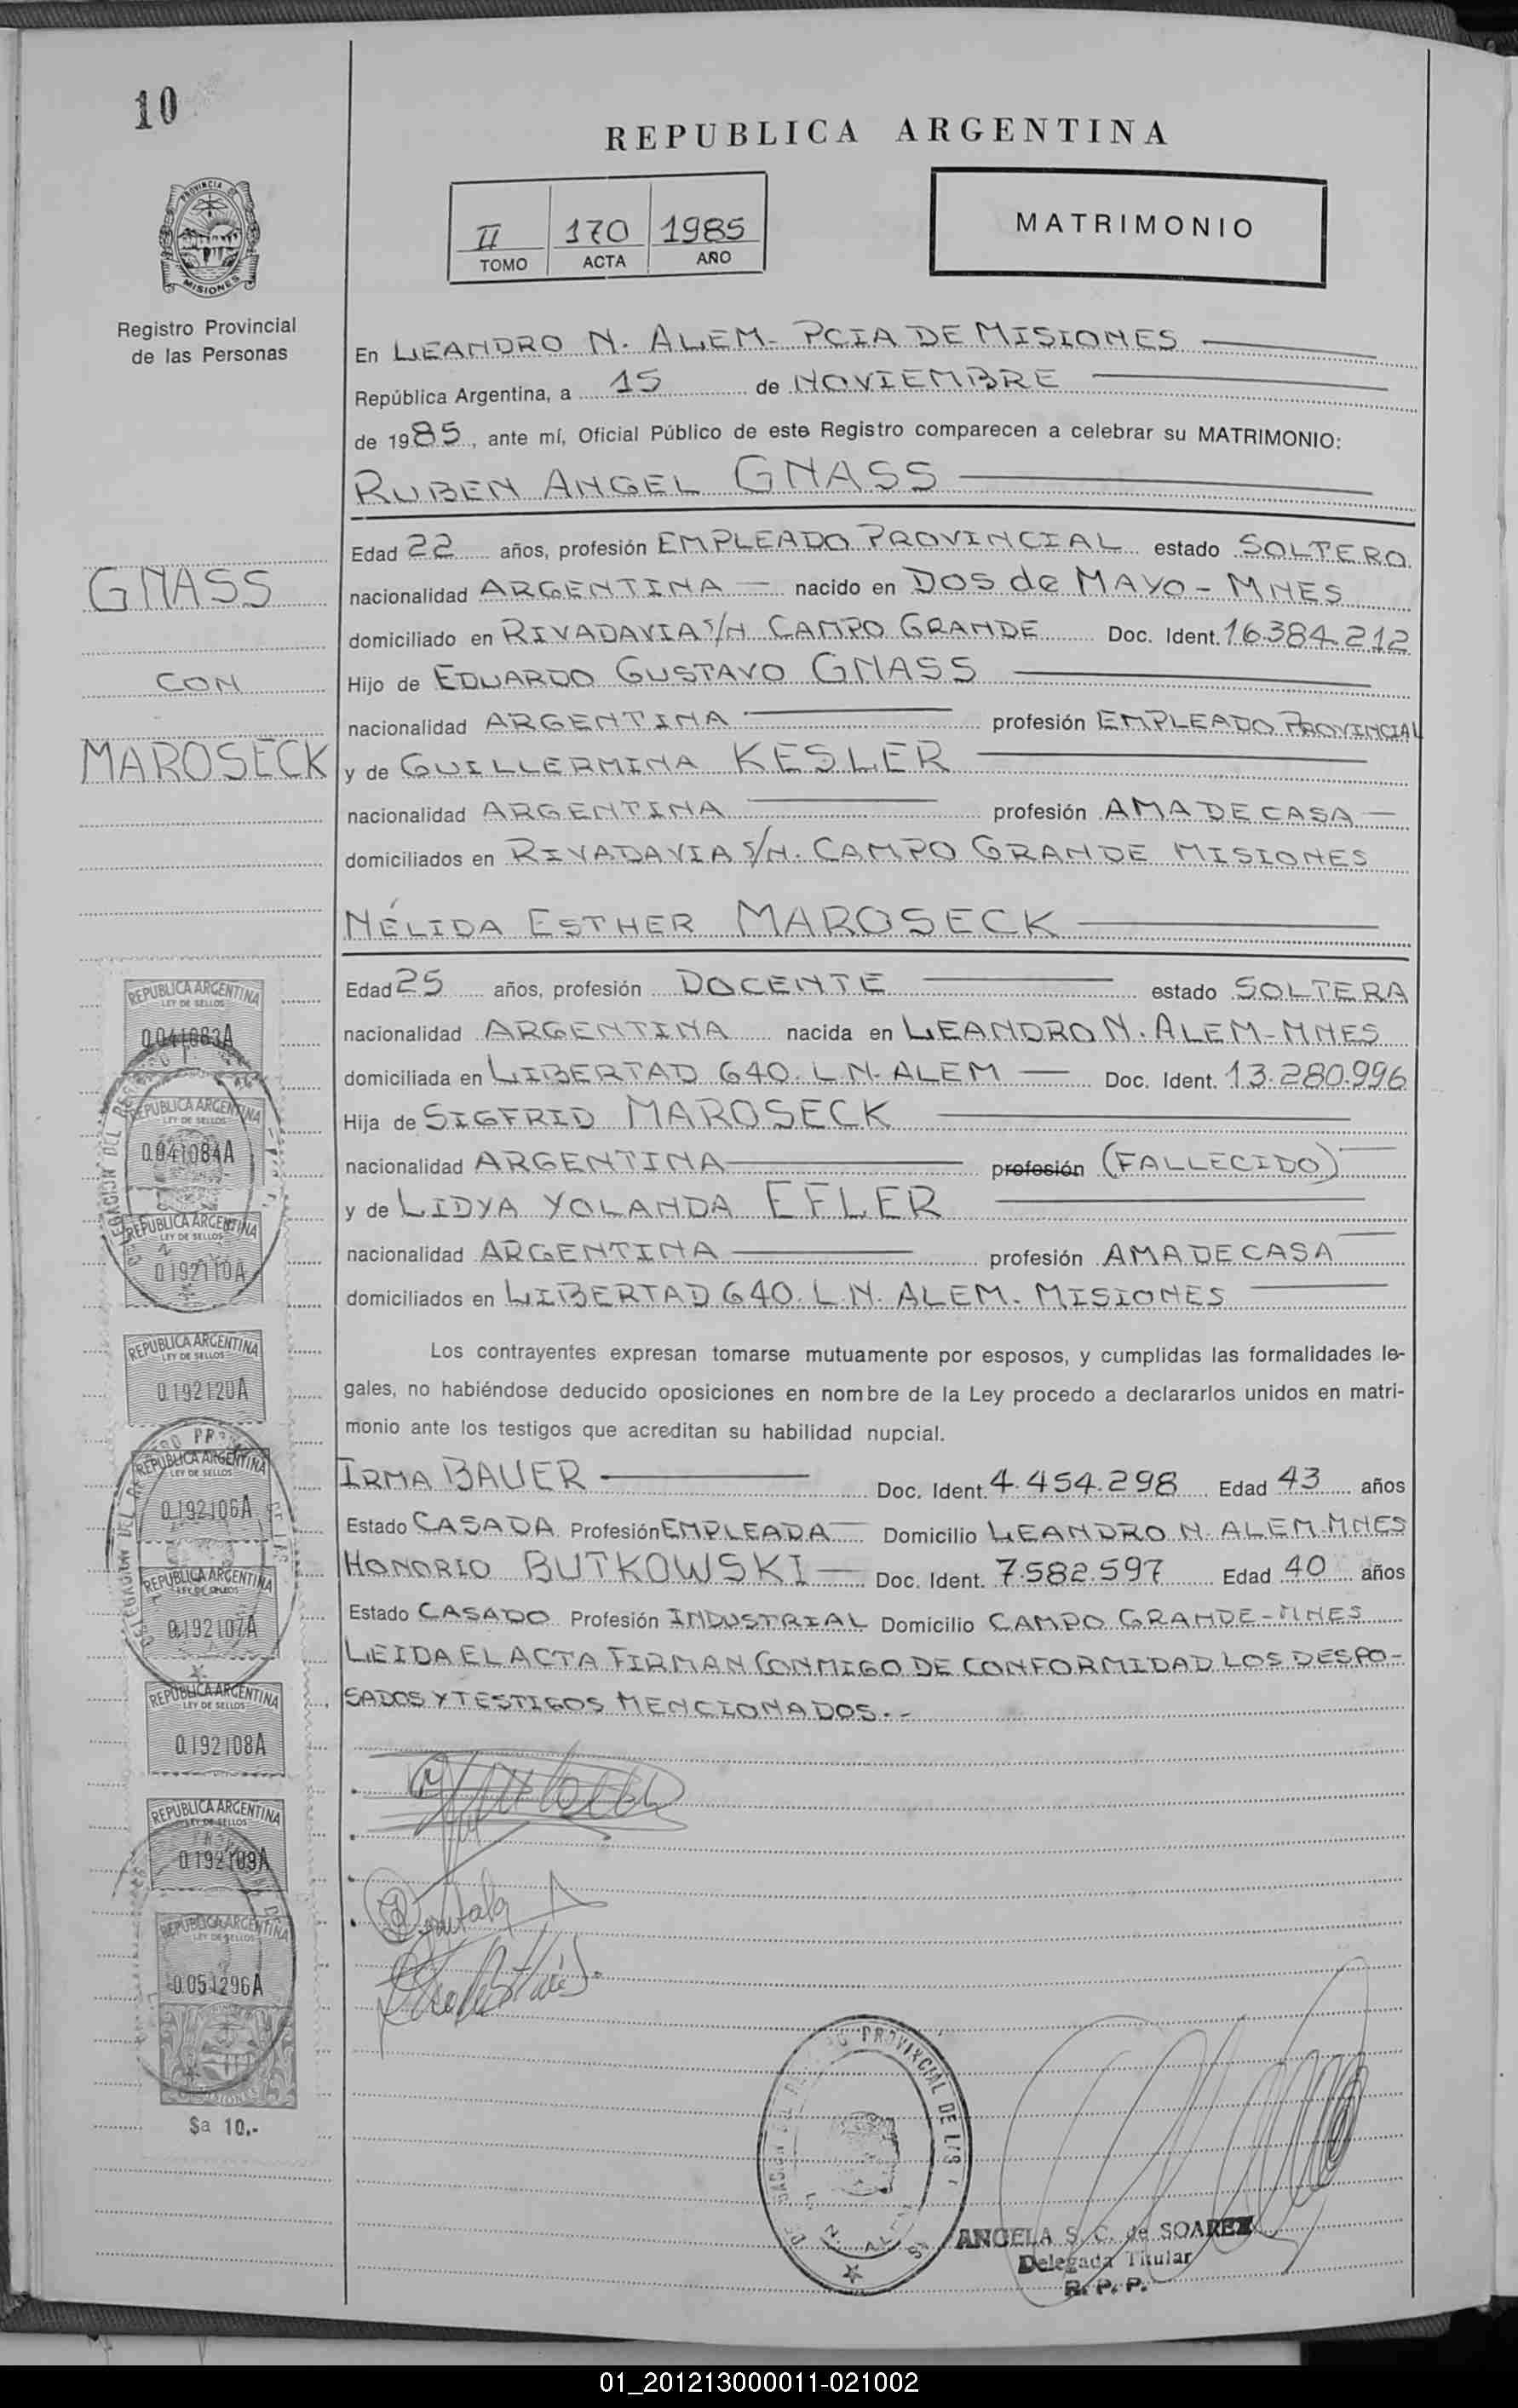 10
REPUBLICA ARGENTINA
PROVINCIA DE
MISIONES
Registro Provincial
de las Personas
II 170 1985
TOMO ACTA AÑO
MATRIMONIO
En LEANDRO N. ALEM- PCIA DE MISIONES
República Argentina, a 15 de NOVIEMBRE
de 1985, ante mí, Oficial Público de este Registro comparecen a celebrar su MATRIMONIO:
RUBEN ANGEL GNASS
Edad 22 años, profesión EMPLEADO PROVINCIAL estado SOLTERO
nacionalidad ARGENTINA — nacido en DOS de MAYO - MNES
domiciliado en RIVADAVIA S/N CAMPO GRANDE Doc. Ident. 16.384.212
Hijo de EDUARDO GUSTAVO GNASS
nacionalidad ARGENTINA profesión EMPLEADO PROVINCIAL
y de GUILLERMINA KESLER
nacionalidad ARGENTINA profesión AMA DE CASA —
domiciliados en RIVADAVIA S/N. CAMPO GRANDE MISIONES
GNASS
CON
MAROSECK
NÉLIDA ESTHER MAROSECK
Edad 25 años, profesión DOCENTE estado SOLTERA
nacionalidad ARGENTINA nacida en LEANDRO N. ALEM-MNES
domiciliada en LIBERTAD 640. L.N. ALEM — Doc. Ident. 13.280.996
Hija de SIGFRID MAROSECK
nacionalidad ARGENTINA profesión (FALLECIDO)
y de LIDYA YOLANDA EFLER
nacionalidad ARGENTINA profesión AMA DE CASA
domiciliados en LIBERTAD 640. L.N. ALEM. MISIONES
Los contrayentes expresan tomarse mutuamente por esposos, y cumplidas las formalidades le-
gales, no habiéndose deducido oposiciones en nombre de la Ley procedo a declararlos unidos en matri-
monio ante los testigos que acreditan su habilidad nupcial.
IRMA BAUER Doc. Ident. 4.454.298 Edad 43 años
Estado CASADA Profesión EMPLEADA Domicilio LEANDRO N. ALEM-MNES
HONORIO BUTKOWSKI — Doc. Ident. 7.582.597 Edad 40 años
Estado CASADO Profesión INDUSTRIAL Domicilio CAMPO GRANDE-MNES
LEIDA EL ACTA FIRMAN CONMIGO DE CONFORMIDAD LOS DESPO-
SADOS Y TESTIGOS MENCIONADOS.-
REPUBLICA ARGENTINA
LEY DE SELLOS
0.041083A
REPUBLICA ARGENTINA
LEY DE SELLOS
0.041084A
REPUBLICA ARGENTINA
LEY DE SELLOS
0.192110A
REPUBLICA ARGENTINA
LEY DE SELLOS
0.192120A
REPUBLICA ARGENTINA
LEY DE SELLOS
0.192106A
REPUBLICA ARGENTINA
LEY DE SELLOS
0.192107A
REPUBLICA ARGENTINA
LEY DE SELLOS
0.192108A
REPUBLICA ARGENTINA
LEY DE SELLOS
0.192109A
REPUBLICA ARGENTINA
LEY DE SELLOS
0.051296A
MISIONES
$a 10.-
PROVINCIAL DE LAS
L. N. ALEM
ANGELA S. C. de SOAREZ
Delegada Titular
R. P. P.
01_201213000011-021002